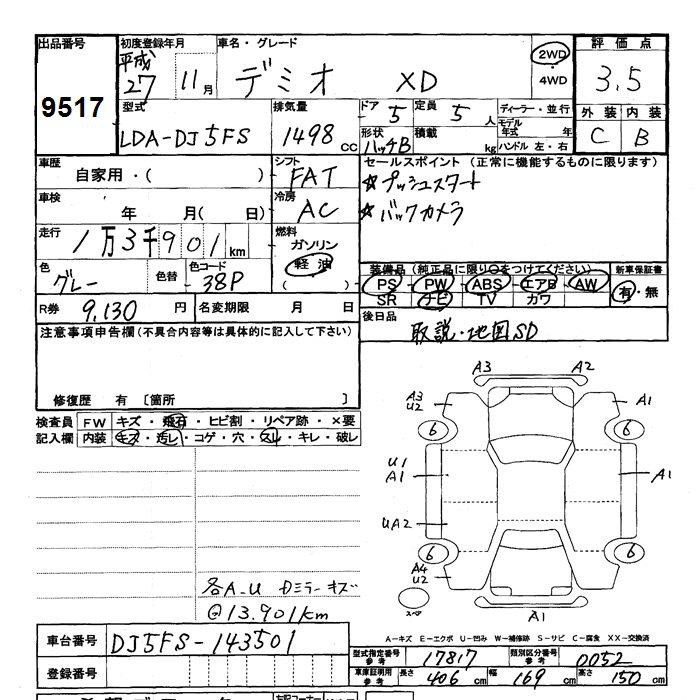 出品番号 初度登録年月 車名・グレード 2WD ・ 4WD 評価点
9517 平成 27 11月 デミオ XD 3.5
型式 排気量 ドア 定員 ディーラー・並行 外装 内装
LDA-DJ5FS 1498 cc 5 5人 モデル年式 年 C B
形状 ハッチB 積載 kg ハンドル 左・右
車歴 自家用・( ) シフト FAT セールスポイント (正常に機能するものに限ります)
☆プッシュスタート
☆バックカメラ
車検 年 月( 日) 冷房 AC
走行 1万3千901km 燃料 ガソリン 軽油 ( )
色 グレー 色替 色コード 38P
装備品(純正品に限り○をつけてください) 新車保証書
PS・PW・ABS・エアB・AW 有・無
SR ナビ TV カワ
R券 9,130 円 名変期限 月 日
後日品 取説・地図SD
注意事項申告欄(不具合内容等は具体的に記入して下さい)
修復歴 有 〔箇所 〕
検査員記入欄 FW キズ・飛石・ヒビ割・リペア跡・×要
内装 キズ・汚レ・コゲ・穴・スレ・キレ・破レ
A3 A2
A3 U2 A1
6 6
U1 A1 A1
UA2
6 6
A4 U2
スペア A1
各A-U Dミラーキズ
@13,901km
A-キズ E-エクボ U-凹み W-補修跡 S-サビ C-腐食 XX-交換済
車台番号 DJ5FS-143501
型式指定番号 参考 17817 類別区分番号 参考 0052
登録番号
車庫証明用 参考 長さ 406 cm 幅 169 cm 高さ 150 cm